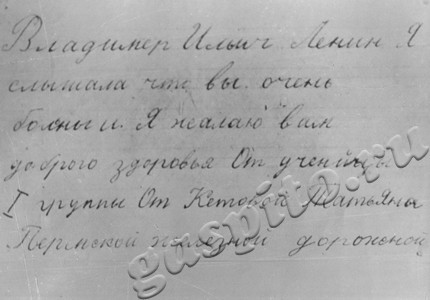 Владимер Ильич Ленин Я
слышала что вы очень
больны и Я жалаю вам
доброго здоровья От ученицы
I группы От Кетовой Татьяны
Пермской железной дорожной
gaspito.ru